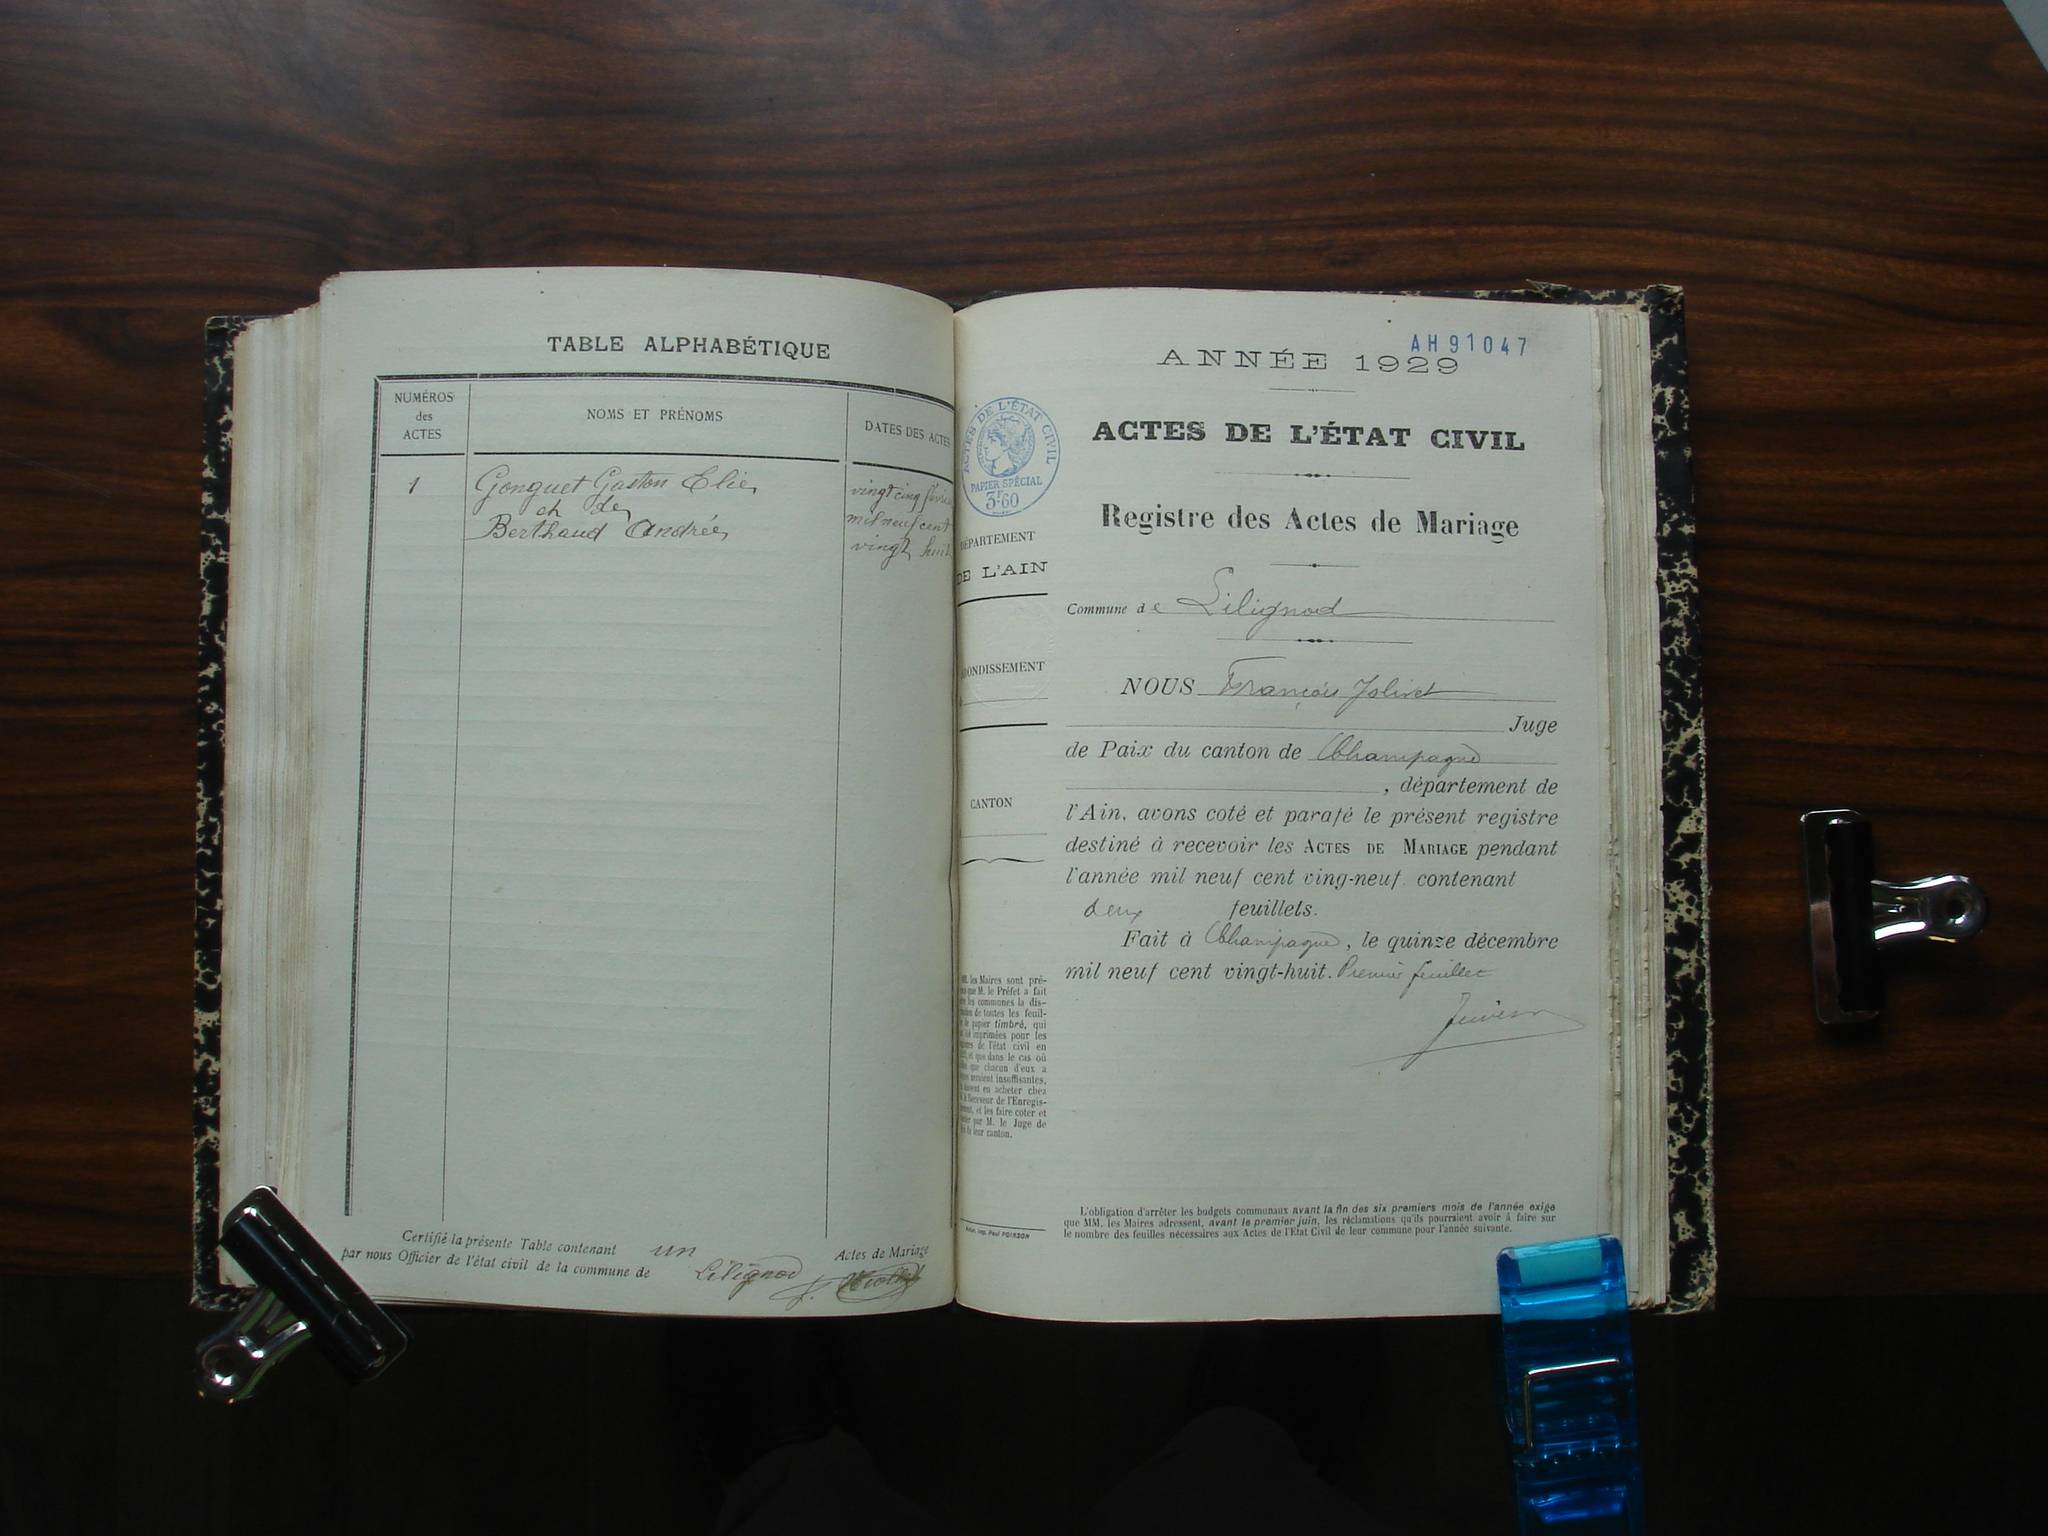 TABLE ALPHABÉTIQUE
NUMÉROS
des
ACTES
NOMS ET PRÉNOMS
DATES DES ACTES
1
Gonguet Gaston Elie
et de
Berthaud Andrée
vingt cinq février
mil neuf cent
vingt huit
Certifié la présente Table contenant un Actes de Mariage
par nous Officier de l'état civil de la commune de Lilignod
AH 91047
ANNÉE 1929
ACTES DE L'ÉTAT CIVIL
ACTES DE L'ÉTAT CIVIL
PAPIER SPÉCIAL
3F60
Registre des Actes de Mariage
DÉPARTEMENT
DE L'AIN
Commune de Lilignod
ONDISSEMENT
NOUS François Jolivet
Juge
de Paix du canton de Champagne
, département de
CANTON
l'Ain, avons coté et parafé le présent registre
destiné à recevoir les ACTES DE MARIAGE pendant
l'année mil neuf cent ving-neuf contenant
deux feuillets.
Fait à Champagne, le quinze décembre
mil neuf cent vingt-huit. Premier feuillet
MM. les Maires sont pré-
que M. le Préfet a fait
les communes la dis-
de toutes les feuil-
de papier timbré, qui
imprimées pour les
de l'état civil en
et que dans le cas où
que chacun d'eux a
seraient insuffisantes,
en acheter chez
Receveur de l'Enregis-
et les faire coter et
par M. le Juge de
leur canton.
imp. Paul POIRSON
L'obligation d'arrêter les budgets communaux avant la fin des six premiers mois de l'année exige
que MM. les Maires adressent, avant le premier juin, les réclamations qu'ils pourraient avoir à faire sur
le nombre des feuilles nécessaires aux Actes de l'Etat Civil de leur commune pour l'année suivante.